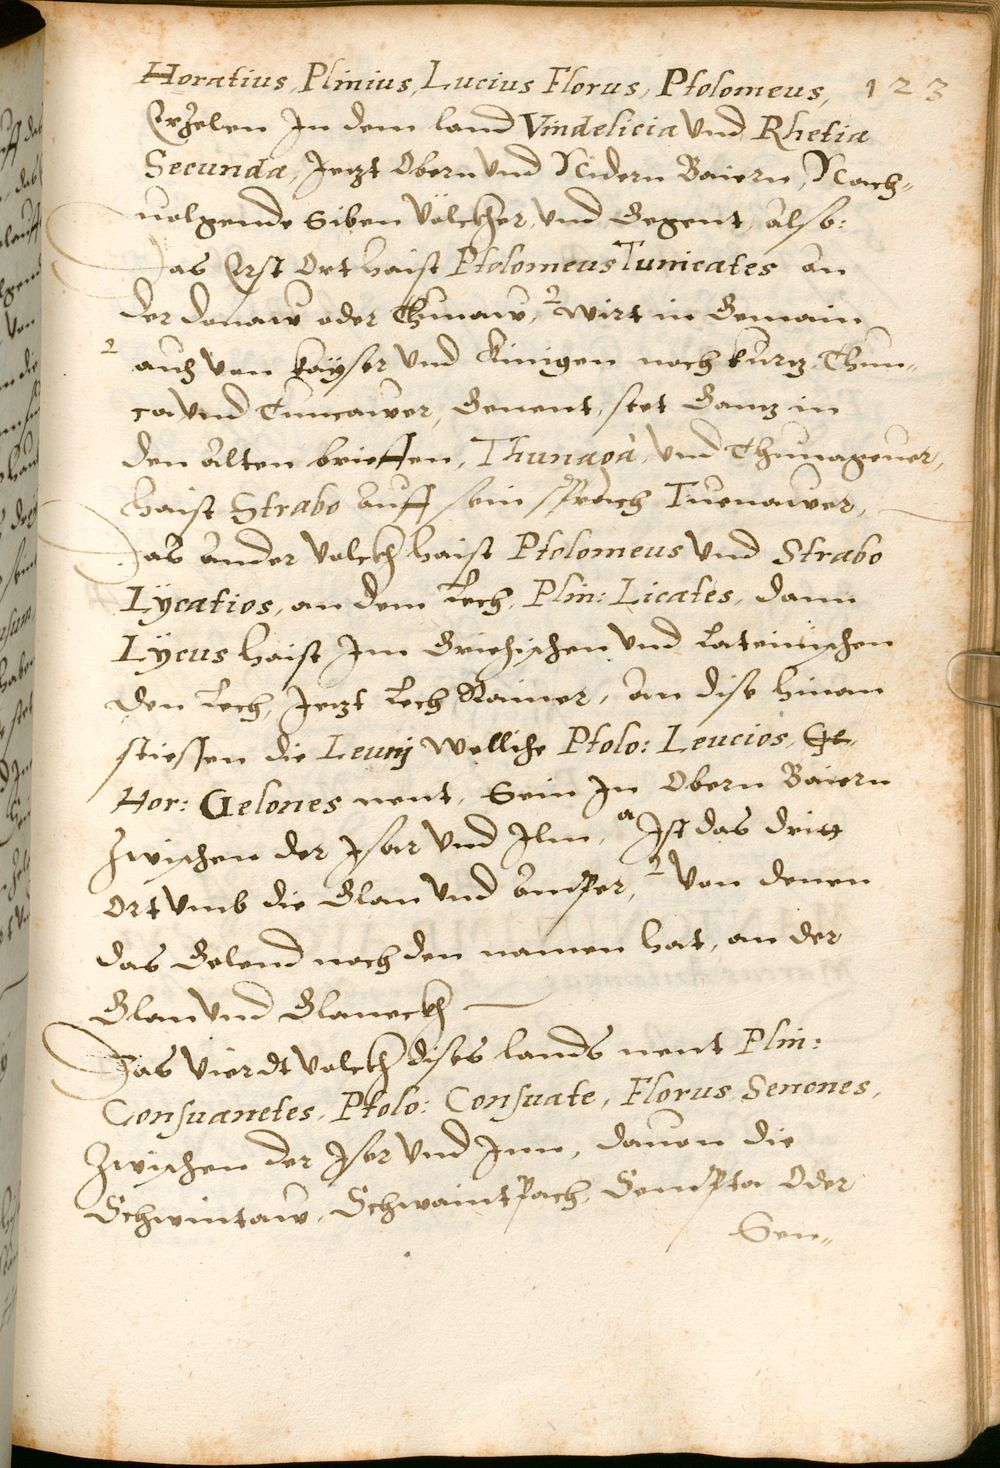 Horatius, Plinius, Lucius Florus, Ptolomeus, 123
Erzelen In dem land Vindelicia Vnd Rhetia
Secunda, Jezt Obern Vnd Nidern Baiern, Nach-
uolgende Siben Völckher, Vnd Gegent, also:
Das Erst Ort haist Ptolomeus Tunicates an
der donaw oder Thunaw, 2 wirt in Gemain
2 auch Von kayser Vnd Künigen noch kurtz Thun-
ca Vnd Tuncawer, Genent, stet Gantz in
den alten brieffen, Thunaga, Vnd Thunageuer,
haist Strabo auff sein sprach Tuenawer,
Das ander Volckh haist Ptolomeus Vnd Strabo
Lÿcatios, an dem Lech, Plin: Licates, dann
Lÿcus haist Im Griechischen Vnd Lateinischen
den Lech, Jezt Lech Rainer, an dise hinan
stiessen die Leunj Welliche Ptolo: Leucios, Ge-
Hor: Gelones nent, Sein In Obern Baiern
Zwischen der Isar Vnd Ilm, a Ist das dritt
Ort Vmb die Glan Vnd Amper, 2 Von denen
das Gelend noch den namen hat, an der
Glan Vnd Glaneckh
Das Vierdt Volckh dises lands nent Plin:
Consuanetes, Ptolo: Consuate, Florus Senones,
Zwischen der Iser Vnd Inn, dauon die
Schwintaw, Schwaintpach, Sempta Oder
Sen-